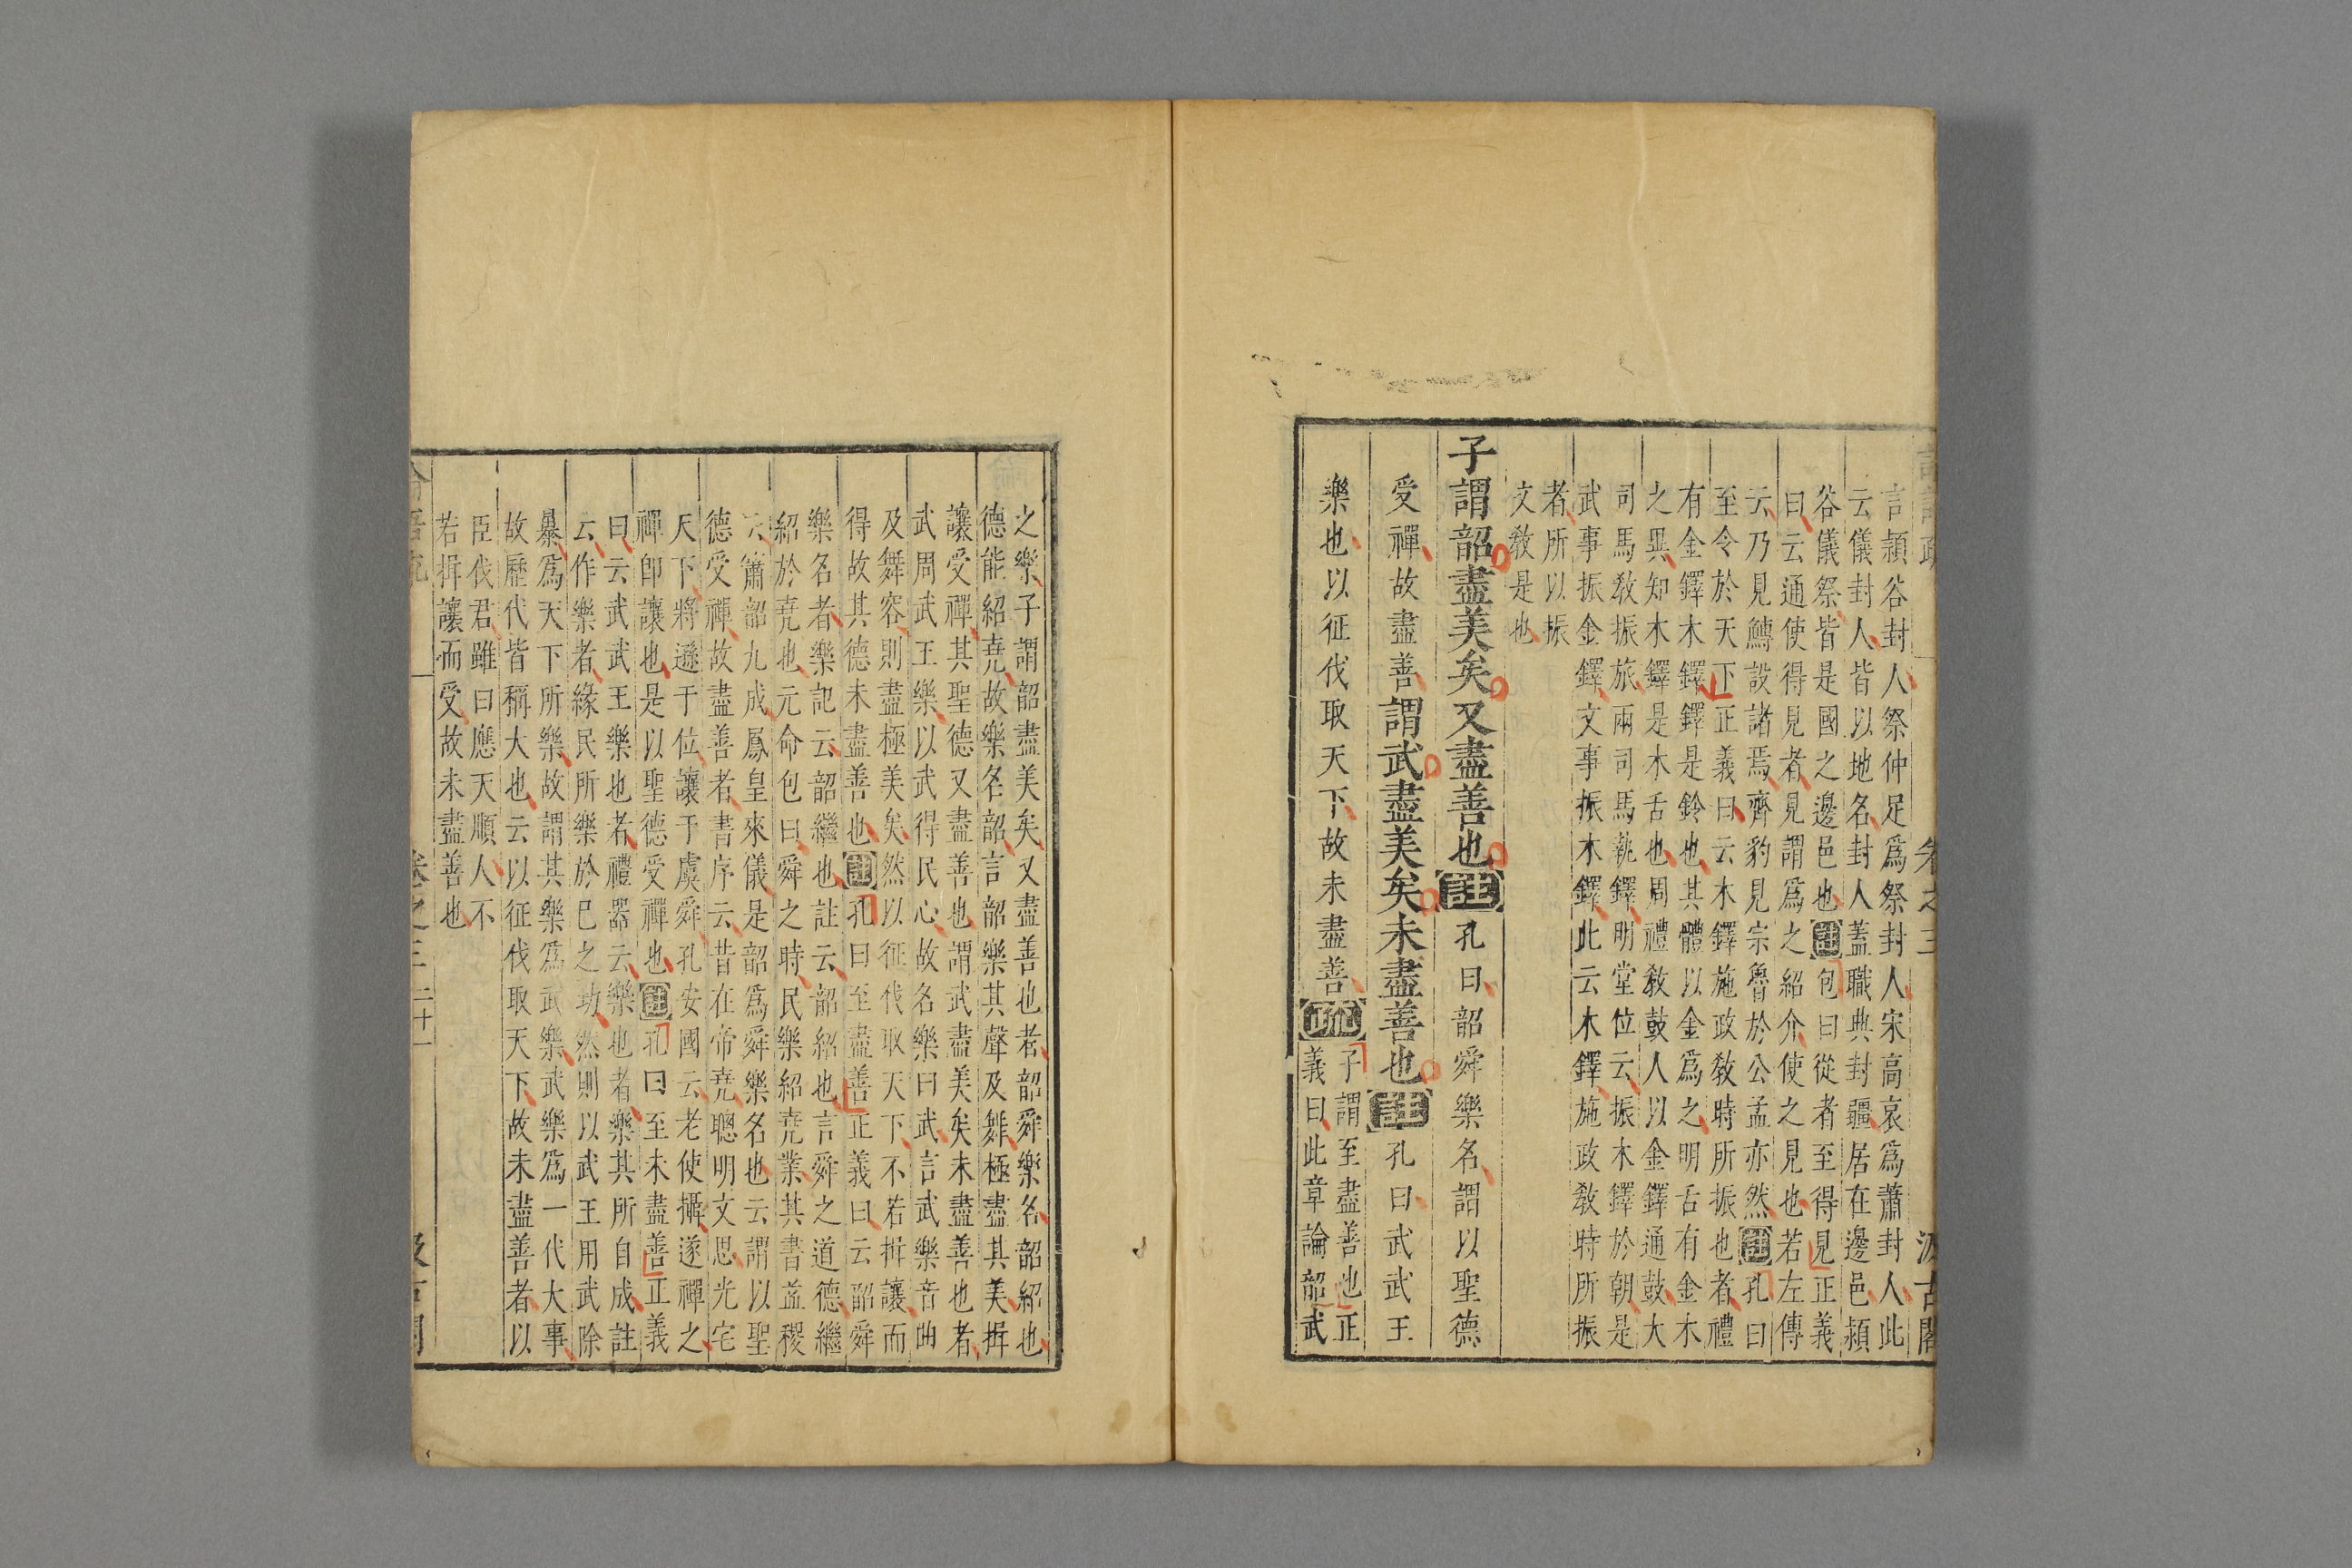 言頴谷封人祭仲足爲祭封人宋高哀爲蕭封人此
云儀封人皆以地名封人蓋職典封疆居在邊邑頴
谷儀祭皆是國之邊邑也註包曰從者至得見正義
曰云通使得見者見謂爲之紹介使之見也若左傳
云乃見鱄設諸焉齊豹見宗魯於公孟亦然註孔曰
至令於天下正義曰云木鐸施政敎時所振也者禮
有金鐸木鐸鐸是鈴也其體以金爲之明舌有金木
之異知木鐸是木舌也周禮敎鼓人以金鐸通鼓大
司馬敎振旅兩司馬執鐸明堂位云振木鐸於朝是
武事振金鐸文事振木鐸此云木鐸施政敎時所振
者所以振
文敎是也
子謂韶盡美矣又盡善也註孔曰韶舜樂名謂以聖德
受禪故盡善謂武盡美矣未盡善也註孔曰武武王
樂也以征伐取天下故未盡善疏子謂至盡善也正
義曰此章論韶武
之樂子謂韶盡美矣又盡善也者韶舜樂名韶紹也
德能紹堯故樂名韶言韶樂其聲及舞極盡其美揖
讓受禪其聖德又盡善也謂武盡美矣未盡善也者
武周武王樂以武得民心故名樂曰武言武樂音曲
及舞容則盡極美矣然以征伐取天下不若揖讓而
得故其德未盡善也註孔曰至盡善正義曰云韶舜
樂名者樂記云韶繼也註云韶紹也言舜之道德繼
紹於堯也元命包曰舜之時民樂紹堯業其書益稷
云簫韶九成鳳皇來儀是韶爲舜樂名也云謂以聖
德受禪故盡善者書序云昔在帝堯聰明文思光宅
天下將遜于位讓于虞舜孔安國云老使攝遂禪之
禪卽讓也是以聖德受禪也註孔曰至未盡善正義
曰云武武王樂也者禮器云樂也者樂其所自成註
云作樂者緣民所樂於巳之功然則以武王用武除
暴爲天下所樂故謂其樂爲武樂武樂爲一代大事
故歷代皆稱大也云以征伐取天下故未盡善者以
臣伐君雖曰應天順人不
若揖讓而受故未盡善也
二十一